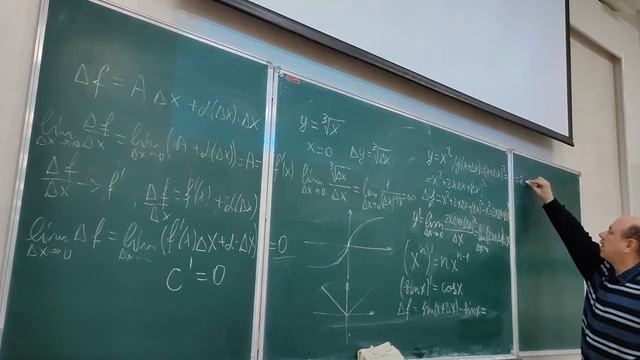 Δf = A Δx + α(Δx)·Δx
lim Δx→0 Δf/Δx = lim Δx→0 (A + α(Δx)) = A = f'(x)
Δf/Δx → f' Δf/Δx = f'(x) + α(Δx)
lim Δx→0 Δf = lim (f'(x)Δx + α·Δx) = 0
C' = 0
y = ∛x
x = 0 Δy = ∛Δx
lim Δx→0 ∛Δx/Δx = lim Δx→0
y = x²
= x² + 2xΔx + Δx²
Δy = x² + 2xΔx + Δx² - x²
y' = lim Δx→0 2xΔx + Δx²/Δx
(xⁿ)' = n xⁿ⁻¹
(sin x)' = cos x
Δf = sin(x+Δx) - sin x =